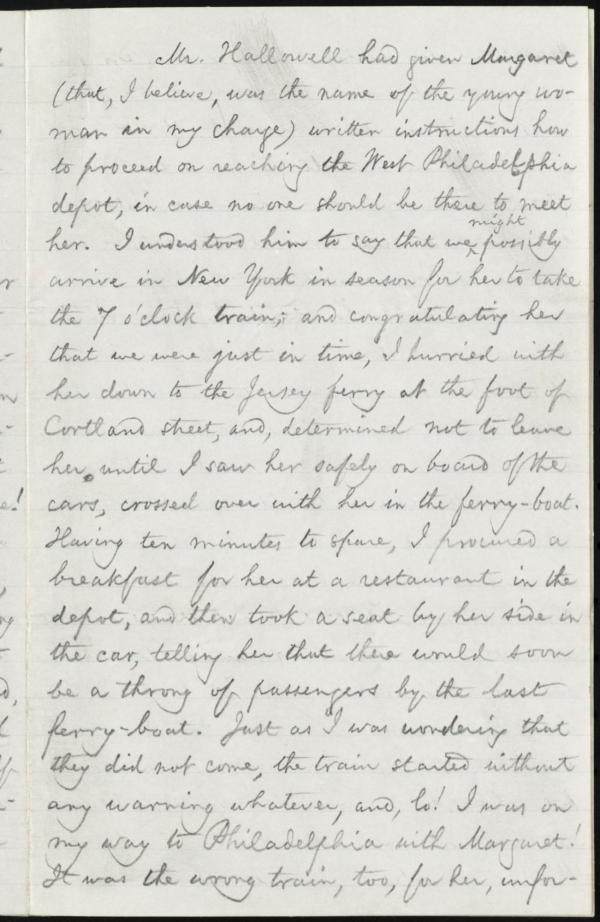 Mr. Hallowell had given Margaret
(that, I believe, was the name of the young wo-
man in my charge) written instructions how
to proceed on reaching the West Philadelphia
depot, in case no one should be there to meet
her. I understood him to say that we might possibly
arrive in New York in season for her to take
the 7 o'clock train; and congratulating her
that we were just in time, I hurried with
her down to the Jersey ferry at the foot of
Cortland street, and, determined not to leave
her until I saw her safely on board of the
cars, crossed over with her in the ferry-boat.
Having ten minutes to spare, I procured a
breakfast for her at a restaurant in the
depot, and then took a seat by her side in
the car, telling her that there would soon
be a throng of passengers by the last
ferry-boat. Just as I was wondering that
they did not come, the train started without
any warning whatever, and, lo! I was on
my way to Philadelphia with Margaret!
It was the wrong train, too, for her, unfor-